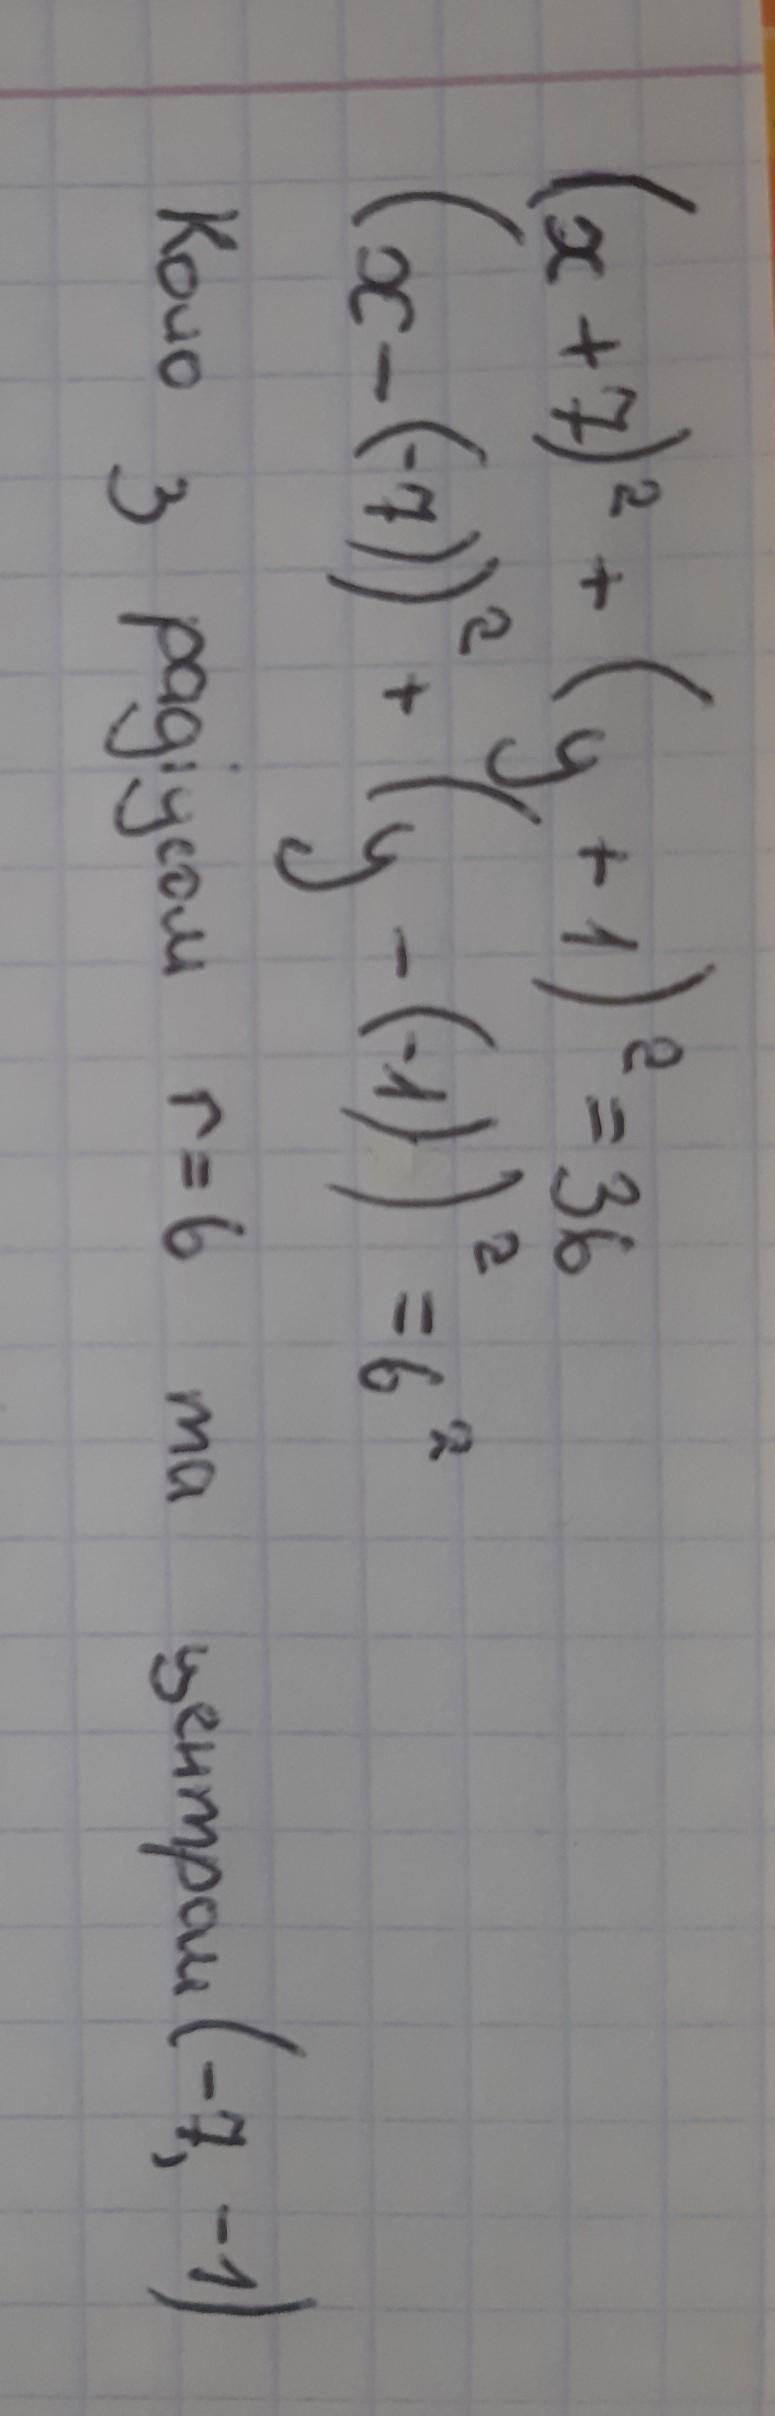 (x + 7)² + (y + 1)² = 36
(x - (-7))² + (y - (-1))² = 6²
Коло з радіусом r = 6 та центром (-7, -1)